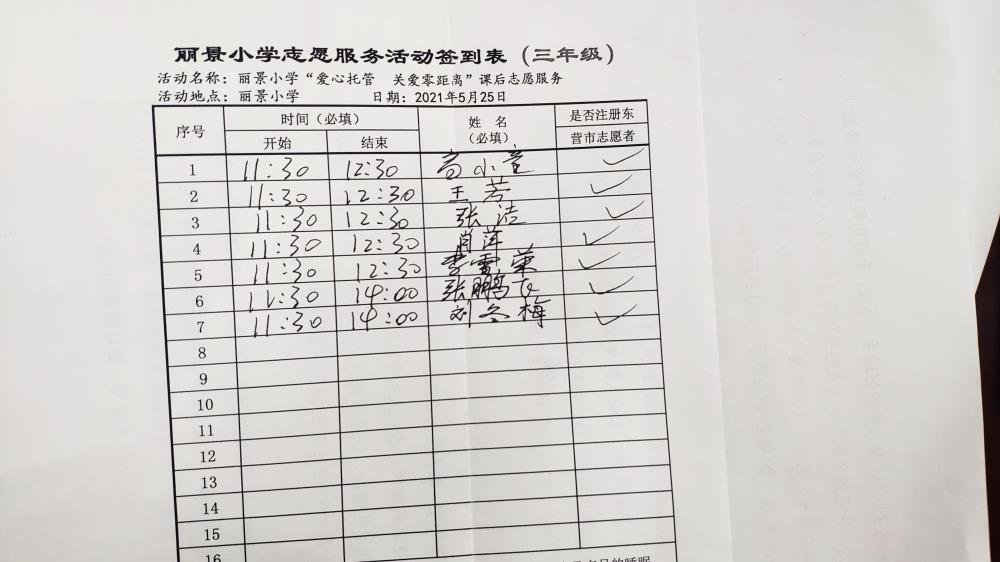 丽景小学志愿服务活动签到表（三年级）
活动名称：丽景小学“爱心托管 关爱零距离”课后志愿服务
活动地点：丽景小学 日期：2021年5月25日
序号 时间（必填） 姓名（必填） 是否注册东营市志愿者
开始 结束
1 11:30 12:30 高小童 ✓
2 11:30 12:30 王芳 ✓
3 11:30 12:30 张洁 ✓
4 11:30 12:30 肖萍 ✓
5 11:30 12:30 李雪荣 ✓
6 11:30 14:00 张鹏飞 ✓
7 11:30 14:00 刘冬梅 ✓
8
9
10
11
12
13
14
15
16